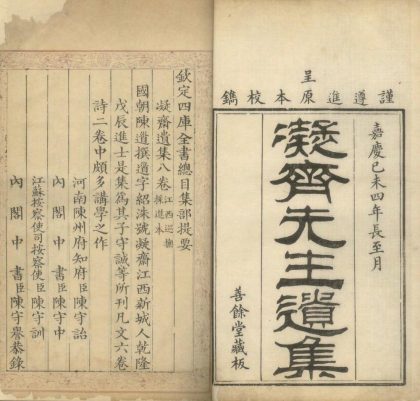 謹遵進
呈
原本校鐫
嘉慶己未四年長至月
凝齋先生遺集
善餘堂藏板
欽定四庫全書總目集部提要
凝齋遺集八卷江西巡撫
採進本
國朝陳道撰道字紹洙號凝齋江西新城人乾隆
戊辰進士是集為其子守誠等所刊凡文六卷
詩二卷中頗多講學之作
河南陳州府知府臣陳守詒
內閣中書臣陳守中
江蘇按察使司按察使臣陳守訓
內閣中書臣陳守譽恭錄